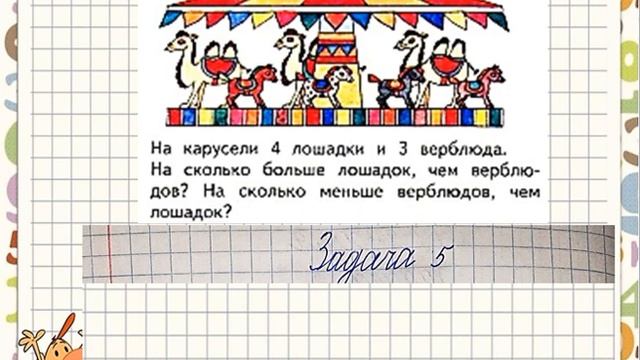 На карусели 4 лошадки и 3 верблюда.
На сколько больше лошадок, чем верблю-
дов? На сколько меньше верблюдов, чем
лошадок?
Задача 5